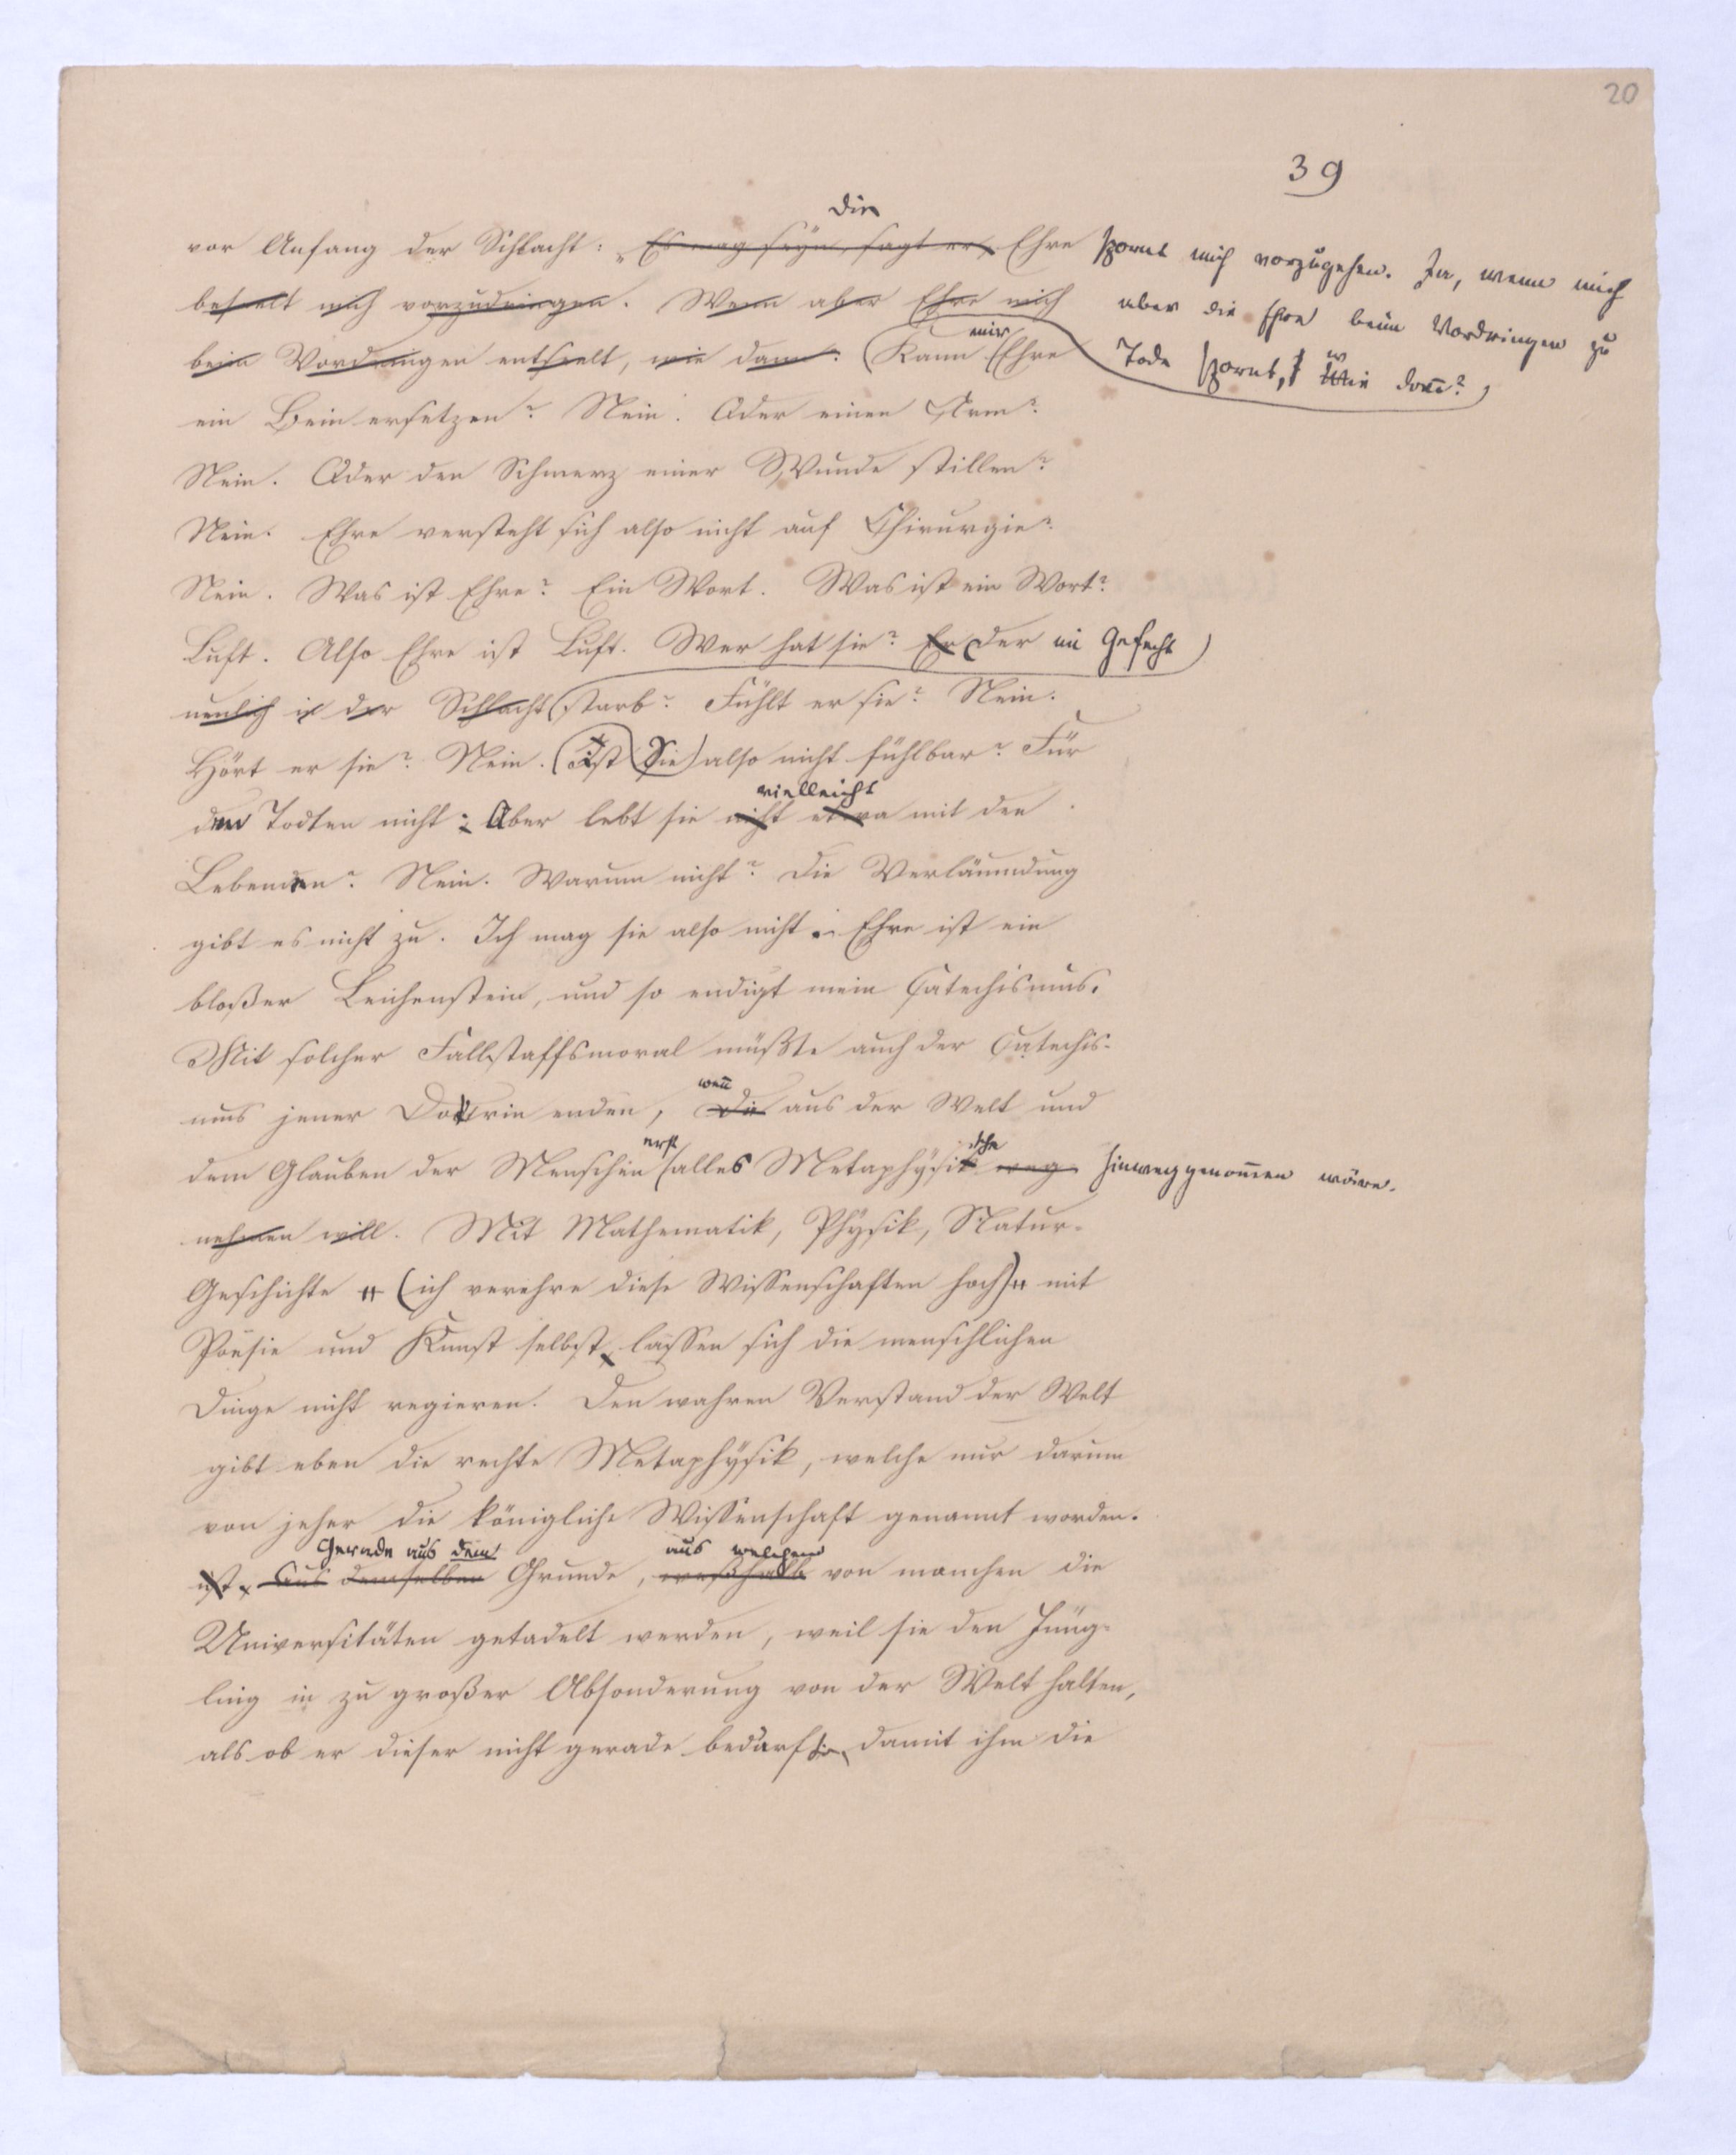 20
39
die
vor Anfang der Schlacht: „Es mag seyn, sagt er, Ehre spornt mich vorzugehen. Ja, wenn mich
beseelt mich vorzudringen. Wenn aber Ehre mich aber die Ehre beim Vordringen zu
mir
beim Vordringen entseelt, wie dann? Kann Ehre Tode spornt, wie dann?
ein Bein ersetzen? Nein. Oder einen Arm?
Nein. Oder den Schmerz einer Wunde stillen?
Nein. Ehre versteht sich also nicht auf Chirurgie?
Nein. Was ist Ehre? Ein Wort. Was ist ein Wort?
Luft. Also Ehre ist Luft. Wer hat sie? Er Der im Gefecht
neulich in der Schlacht starb? Fühlt er sie? Nein.
Hört er sie? Nein. Ist Sie also nicht fühlbar? Für
vielleicht
den Todten nicht; Aber lebt sie nicht etwa mit den
Lebenden? Nein. Warum nicht? Die Verläumdung
gibt es nicht zu. Ich mag sie also nicht. Ehre ist ein
bloßer Leichenstein, und so endigt mein Catechismus.
Mit solcher Fallstaffsmoral müßte auch der Catechis-
wen̅
mus jener Doktrin enden, die aus der Welt und
erst sche
dem Glauben der Menschen alles Metaphysik weg hinweggenom̅en wäre.
nehmen will. Mit Mathematik, Physik, Natur-
Geschichte (ich verehre diese Wissenschaften hoch) mit
Poesie und Kunst selbst, lassen sich die menschlichen
Dinge nicht regieren. Den wahren Verstand der Welt
gibt eben die rechte Metaphysik, welche nur darum
von jeher die königliche Wissenschaft genannt worden.
Gerade aus dem aus welchem
ist. Aus demselben Grunde, weßhalb von manchen die
Universitäten getadelt werden, weil sie den Jüng-
ling in zu großer Absonderung von der Welt halten,
als ob er dieser nicht gerade bedürfe, damit ihm die